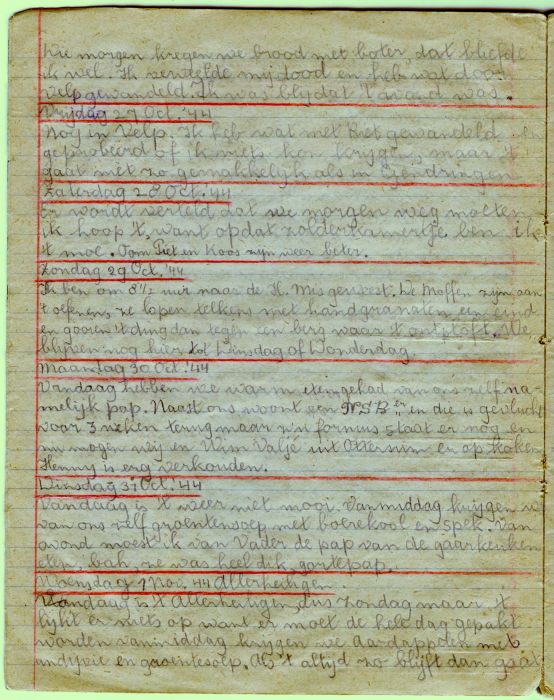 Die morgen kregen we brood met boter, dat bliefde
ik wel. Ik verveelde mij dood en heb wat door
Velp gewandeld. Ik was blij dat 't avond was.
Vrijdag 27 Oct. '44
Nog in Velp. Ik heb wat met Piet gewandeld en
geprobeerd of ik niets kon krijgen, maar 't
gaat niet zo gemakkelijk als in
Zaterdag 28 Oct. '44
Er wordt verteld dat we morgen weg moeten
ik hoop 't, want op dat zolderkamertje ben ik
't moe. Tom Piet en Koos zijn weer beter.
Zondag 29 Oct. '44
Ik ben om 8 uur naar de H. Mis geweest. De Moffen zijn aan
't oefenen, ze lopen telkens met handgranaten een eind
en gooien 't ding dan tegen een berg waar 't ontploft. We
blijven nog hier tot Dinsdag of Donderdag.
Maandag 30 Oct. '44
Vandaag hebben we warm eten gehad van ons zelf na-
melijk pap. Naast ons woont een N.S.B.er en die is gevlucht
voor 3 weken terug maar z'n fornuis staat er nog en
nu mogen wij en Wim Valjé uit Ottersum er op koken
Henny is erg verkouden.
Dinsdag 31 Oct. '44
Vandaag is 't weer niet mooi. Vanmiddag krijgen we
van ons zelf groentensoep met boerekool en spek. Van
avond moest ik van Vader de pap van de gaarkeuken
eten, bah, ze was heel dik, gortepap.
Woensdag 1 Nov. 44 Allerheiligen.
Vandaag is 't Allerheiligen, dus Zondag maar 't
lijkt er niets op want er moet de hele dag gepakt
worden vanmiddag krijgen we aardappelen met
andijvie en groentesoep. Als 't altijd zo blijft dan gaat